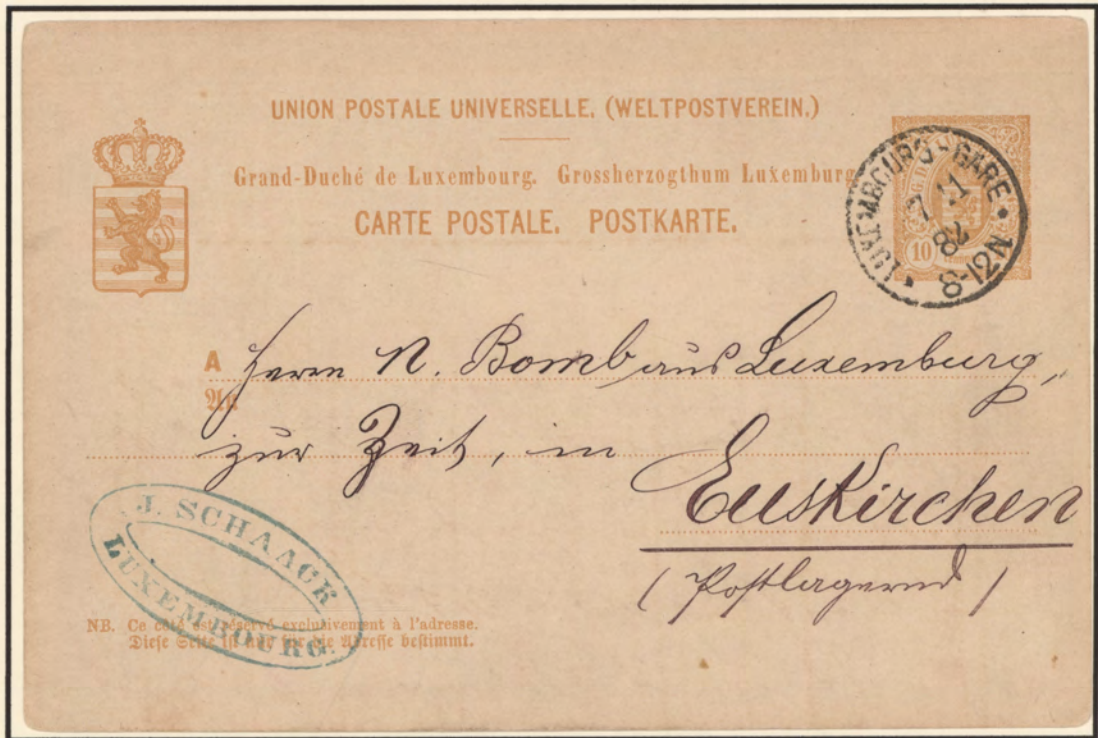 UNION POSTALE UNIVERSELLE. (WELTPOSTVEREIN.)
Grand-Duché de Luxembourg. Grossherzogthum Luxemburg
CARTE POSTALE. POSTKARTE.
LUXEMBOURG-GARE
7 11
82
8-12N
10
A Herrn N. Bomb aus Luxemburg,
An
zur Zeit, in
Euskirchen
(Postlagernd)
J. SCHAACK
LUXEMBOURG.
NB. Ce côté est réservé exclusivement à l'adresse.
Diese Seite ist nur für die Adresse bestimmt.